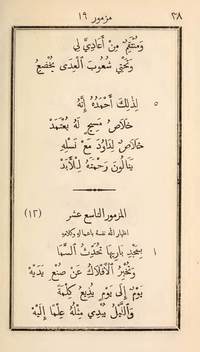 ٣٨ مزمور ١٩
وَمُنْتَقِمٌ مِنْ أَعَادِيَّ لِي
وَتَحْتِي شُعُوبَ ٱلْعِدَى يُخْضِعُ
٥ لِذٰلِكَ أَحْمَدُهُ إِنَّهُ
خَلَاصُ مَسِيحٍ لَهُ يُعْتَمَدْ
خَلَاصٌ لِدَاوُدَ مَعْ نَسْلِهِ
يَنَالُونَ رَحْمَتَهُ لِلْأَبَدْ
المزمور التاسع عشر (١٢)
اظهار الله نفسه باعماله وكلامه
١ بِمَجْدِ بَارِيهَا تُحَدِّثُ ٱلسَّمَا
وَتُخْبِرُ ٱلْأَفْلَاكُ عَنْ صُنْعِ يَدَيْهْ
يَوْمٌ إِلَى يَوْمٍ يُذِيعُ كِلْمَةً
وَٱللَّيْلُ يُبْدِي مِثْلُهُ عِلْمًا إِلَيْهْ